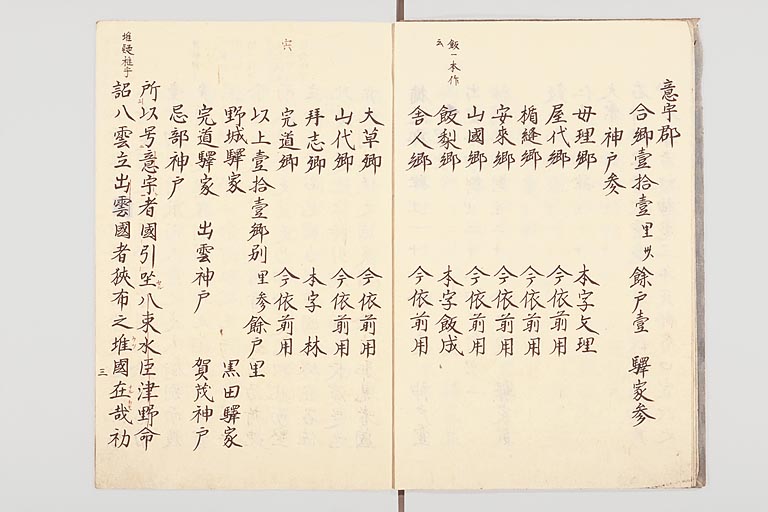 意宇郡
合郷壹拾壹里卅餘戸壹 驛家参
神戸参
母理郷 本字文理
屋代郷 今依前用
楯縫郷 今依前用
安來郷 今依前用
山國郷 今依前用
飯梨郷 本字飯成
舎人郷 今依前用
飯一本作
云
大草郷 今依前用
山代郷 今依前用
拜志郷 本字林
完道郷 今依前用
以上壹拾壹郷別里参餘戸里
野城驛家 黒田驛家
完道驛家 出雲神戸 賀茂神戸
忌部神戸
所以号意宇者國引坐八束水臣津野命
詔八雲立出雲國者狹布之堆國在哉初
穴
三